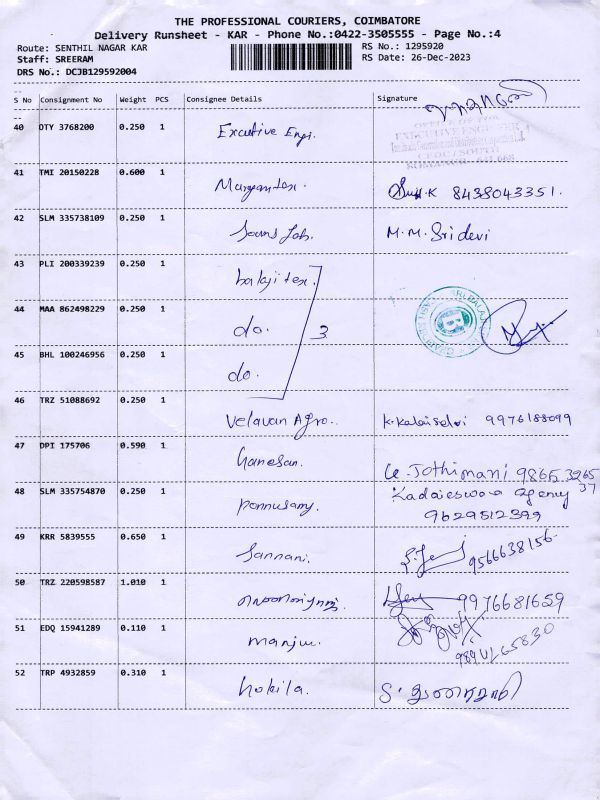 THE PROFESSIONAL COURIERS, COIMBATORE
Delivery Runsheet - KAR - Phone No.:0422-3505555 - Page No.:4
Route: SENTHIL NAGAR KAR RS No.: 1295920
Staff: SREERAM RS Date: 26-Dec-2023
DRS No.: DCJB129592004
S No Consignment No Weight PCS Consignee Details Signature
40 DTY 3768200 0.250 1 Executive Engr. EXECUTIVE ENGINEER
41 TMI 20150228 0.600 1 8438043351.
42 SLM 335738109 0.250 1 M.M. Sridevi
43 PLI 200339239 0.250 1 balaji tex.
44 MAA 862498229 0.250 1 do. 3
45 BHL 100246956 0.250 1 do.
46 TRZ 51088692 0.250 1 Velavan Agro.. K. Kalaiselvi 9976188099
47 DPI 175706 0.590 1 Ganesan. Jothimani 98653265
37
48 SLM 335754870 0.250 1 ponnusamy. Kadaieswara agency
9629512399
49 KRR 5839555 0.650 1 9566638156-
50 TRZ 220598587 1.010 1 9976681659
51 EDQ 15941289 0.110 1 manju.
52 TRP 4932859 0.310 1 kokila.